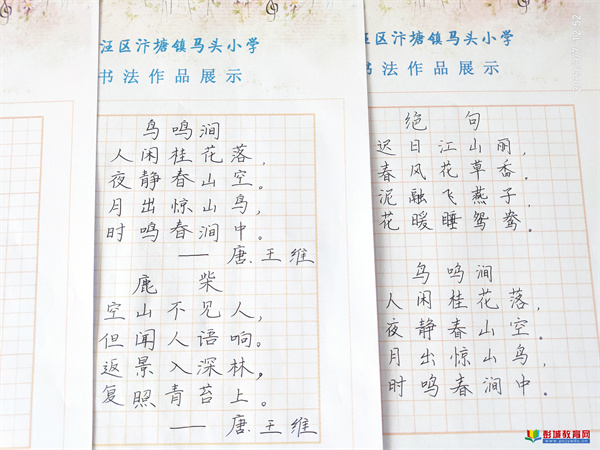 汪区汴塘镇马头小学
书法作品展示
鸟鸣涧
人闲桂花落，
夜静春山空。
月出惊山鸟，
时鸣春涧中。
—— 唐.王维
鹿柴
空山不见人，
但闻人语响。
返景入深林，
复照青苔上。
—— 唐.王维
汪区汴塘镇马头小学
书法作品展示
绝句
迟日江山丽，
春风花草香。
泥融飞燕子，
花暖睡鸳鸯。
鸟鸣涧
人闲桂花落，
夜静春山空。
月出惊山鸟，
时鸣春涧中。
彭城教育网